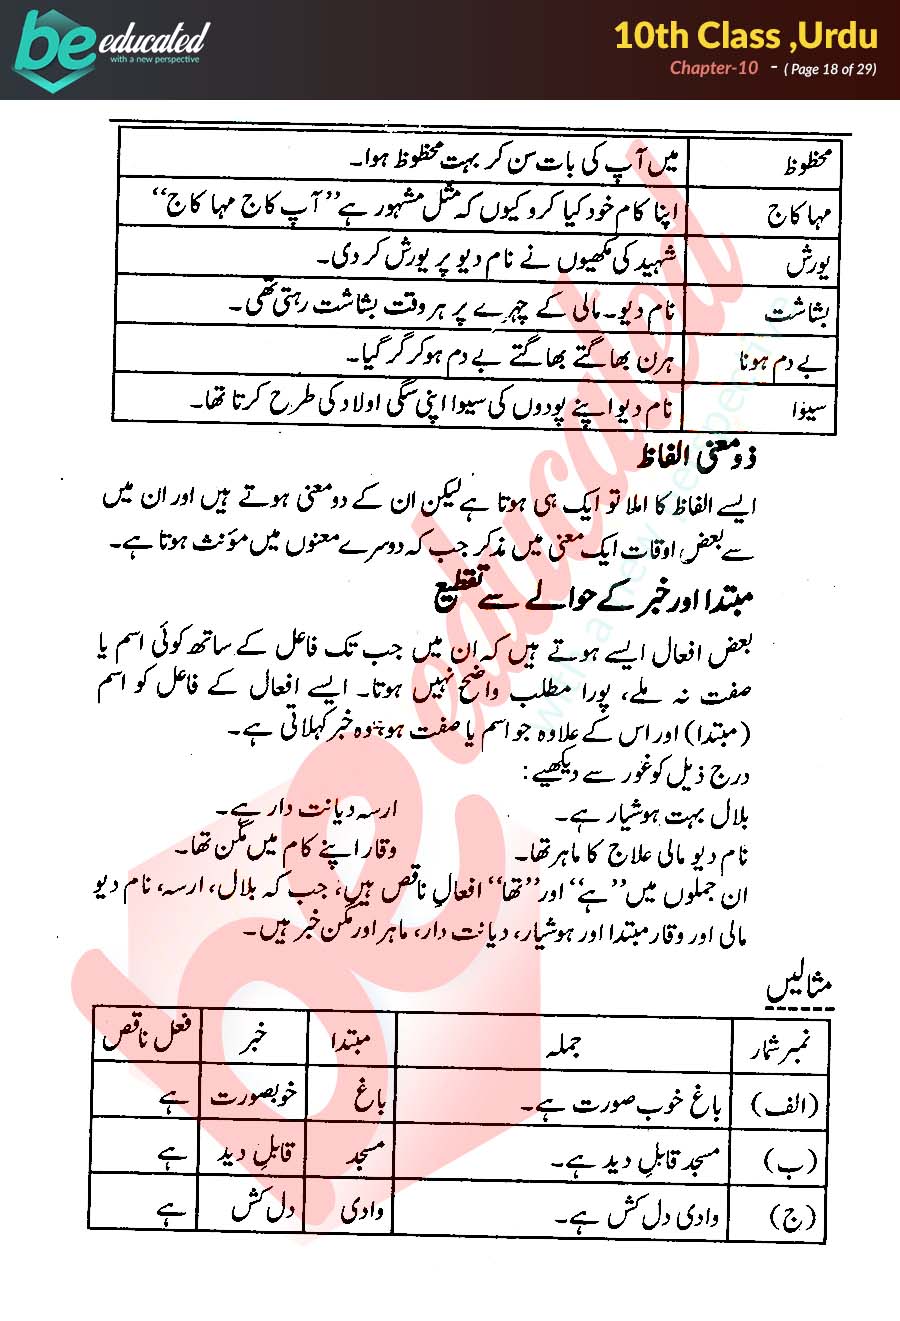 be educated
with a new perspective
10th Class ,Urdu
Chapter-10 - ( Page 18 of 29)
محظوظ	میں آپ کی بات سن کر بہت محظوظ ہوا۔
مہا کاج	اپنا کام خود کیا کرو کیوں کہ مثل مشہور ہے ”آپ کاج مہا کاج“
یورش	شہید کی مکھیوں نے نام دیو پر یورش کر دی۔
بشاشت	نام دیو۔ مالی کے چہرے پر ہر وقت بشاشت رہتی تھی۔
بے دم ہونا	ہرن بھاگتے بھاگتے بے دم ہو کر گر گیا۔
سیوا	نام دیو اپنے پودوں کی سیوا اپنی سگی اولاد کی طرح کرتا تھا۔
ذو معنی الفاظ
ایسے الفاظ کا املا تو ایک ہی ہوتا ہے لیکن ان کے دو معنی ہوتے ہیں اور ان میں
سے بعض اوقات ایک معنی میں مذکر جب کہ دوسرے معنوں میں مؤنث ہوتا ہے۔
مبتدا اور خبر کے حوالے سے تقطیع
بعض افعال ایسے ہوتے ہیں کہ ان میں جب تک فاعل کے ساتھ کوئی اسم یا
صفت نہ ملے، پورا مطلب واضح نہیں ہوتا۔ ایسے افعال کے فاعل کو اسم
(مبتدا) اور اس کے علاوہ جو اسم یا صفت ہو وہ خبر کہلاتی ہے۔
درج ذیل کو غور سے دیکھیے:
بلال بہت ہوشیار ہے۔	ارسہ دیانت دار ہے۔
نام دیو مالی علاج کا ماہر تھا۔	وقار اپنے کام میں مگن تھا۔
ان جملوں میں ”ہے“ اور ”تھا“ افعالِ ناقص ہیں، جب کہ بلال، ارسہ، نام دیو
مالی اور وقار مبتدا اور ہوشیار، دیانت دار، ماہر اور مگن خبر ہیں۔
مثالیں
نمبر شمار	جملہ	مبتدا	خبر	فعل ناقص
(الف)	باغ خوب صورت ہے۔	باغ	خوبصورت	ہے
(ب)	مسجد قابلِ دید ہے۔	مسجد	قابلِ دید	ہے
(ج)	وادی دل کش ہے۔	وادی	دل کش	ہے
be educated
with a new perspective